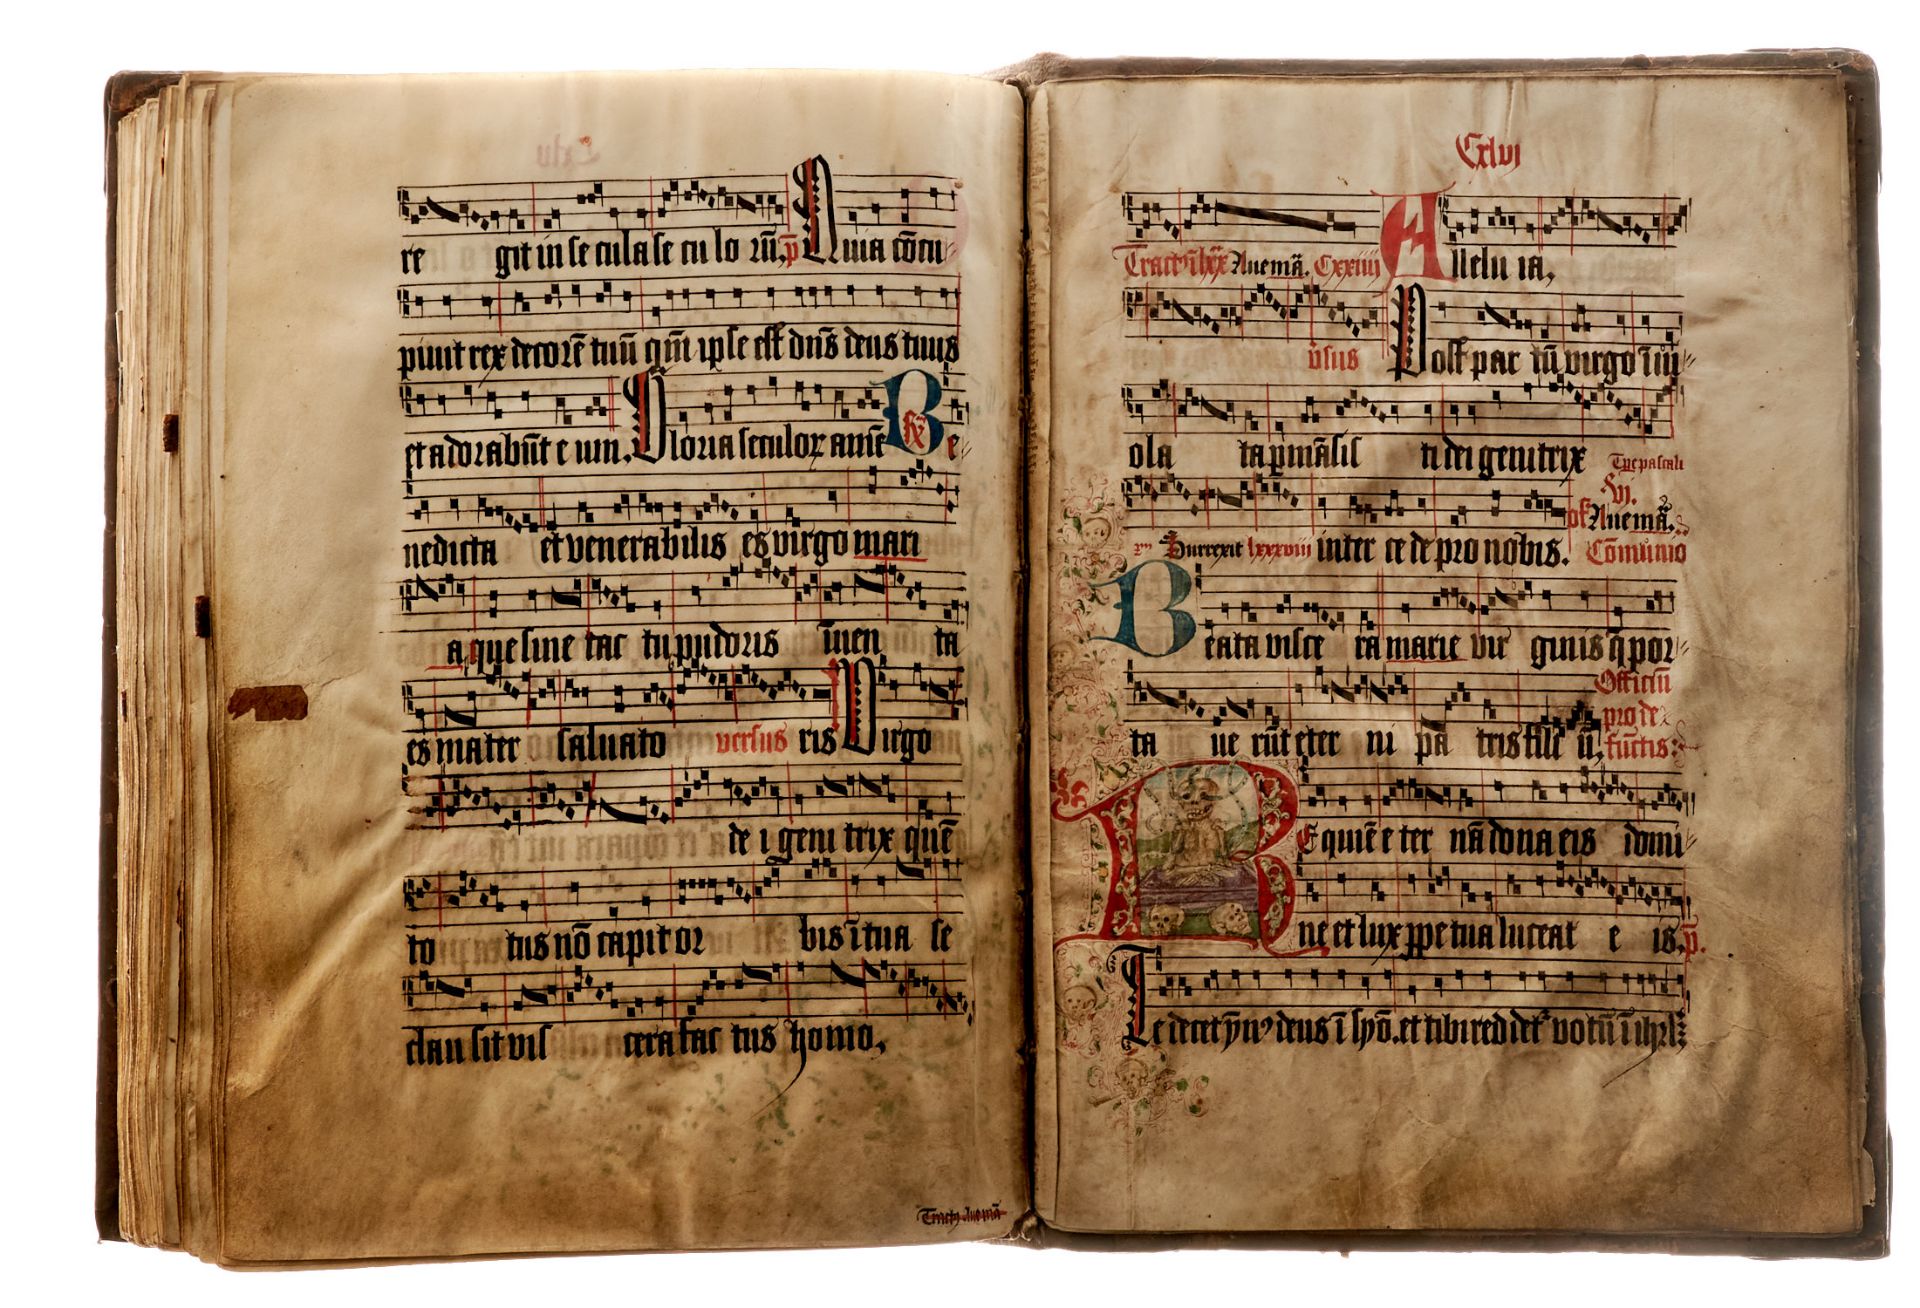 re git in se cula se cu lo rū. p̄ Quia cōcu
piuit rex decorē tuū qm̄ ipse est dn̄s deus tuus
et adorabūt e um. Gloria seculoꝝ amē Gͬ Be
nedicta et venerabilis es virgo mari
a que sine tac tu pudoris īuen ta
es mater saluato versus ris Virgo
de i geni trix quē
to tus nō capit or bis ī tua se
clau sit vis cera fac tus homo.
Tractꝯ Aue mā
Cxlvi
Tractꝯ Aue mā. Cxxiiii Alleluia.
v̄sus Post par tū virgo īui
ola ta p̄māsis ti dei genitrix Tp̄e pascali
Vi.
of Aue mā.
Surrexit lxxxviii inter ce de pro nobis. Cōmunio
Beata visce ra marie vir ginis q̄ por
Officiū
ta ue rūt eter ni pa tris fili ū, pro de
fūctis:
Requiē e ter nā dona eis domi
ne et lux ꝑpe tua luceat e is. p̄.
Te decet ym̄ꝰ deus ī syō. et tibi reddetͬ votū ī ihrlꝫ